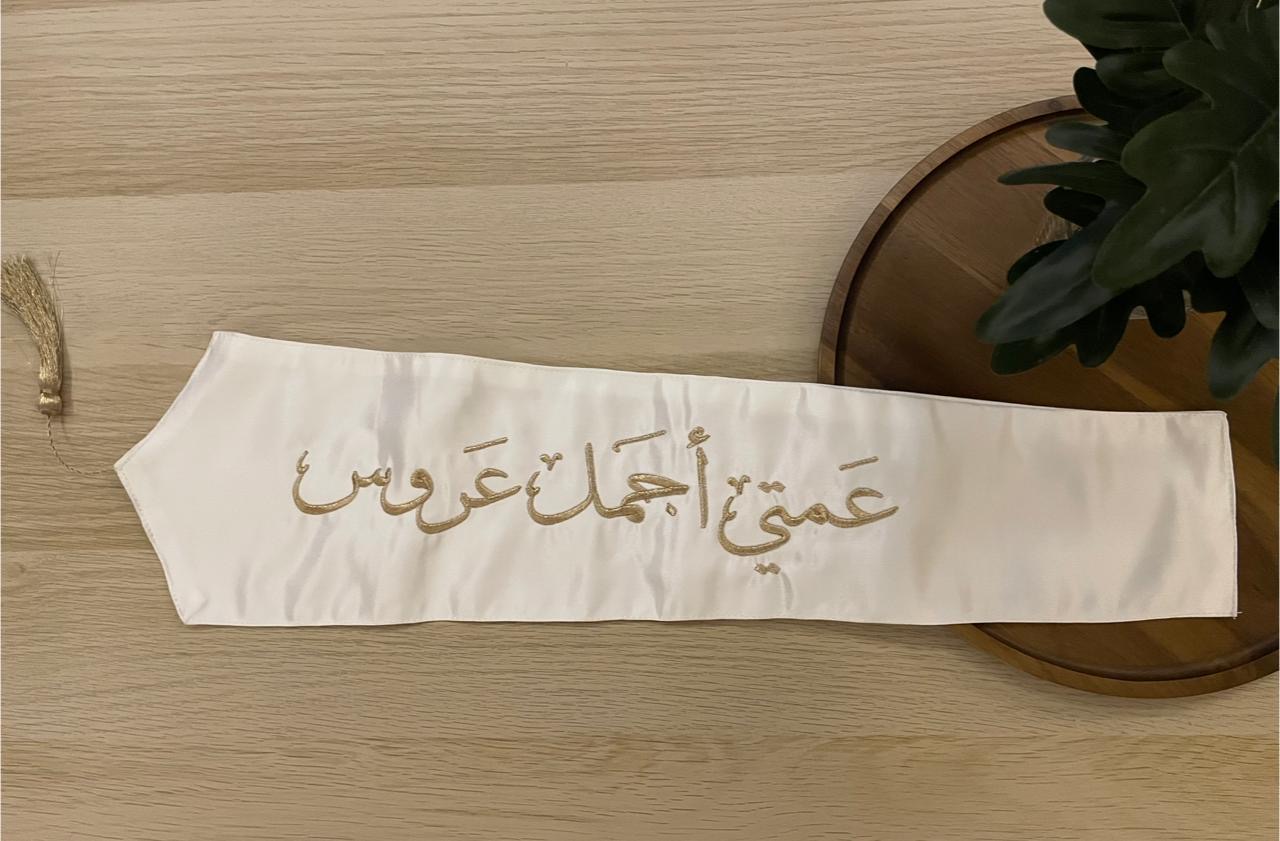 عَمتي أَجمَل عَروس